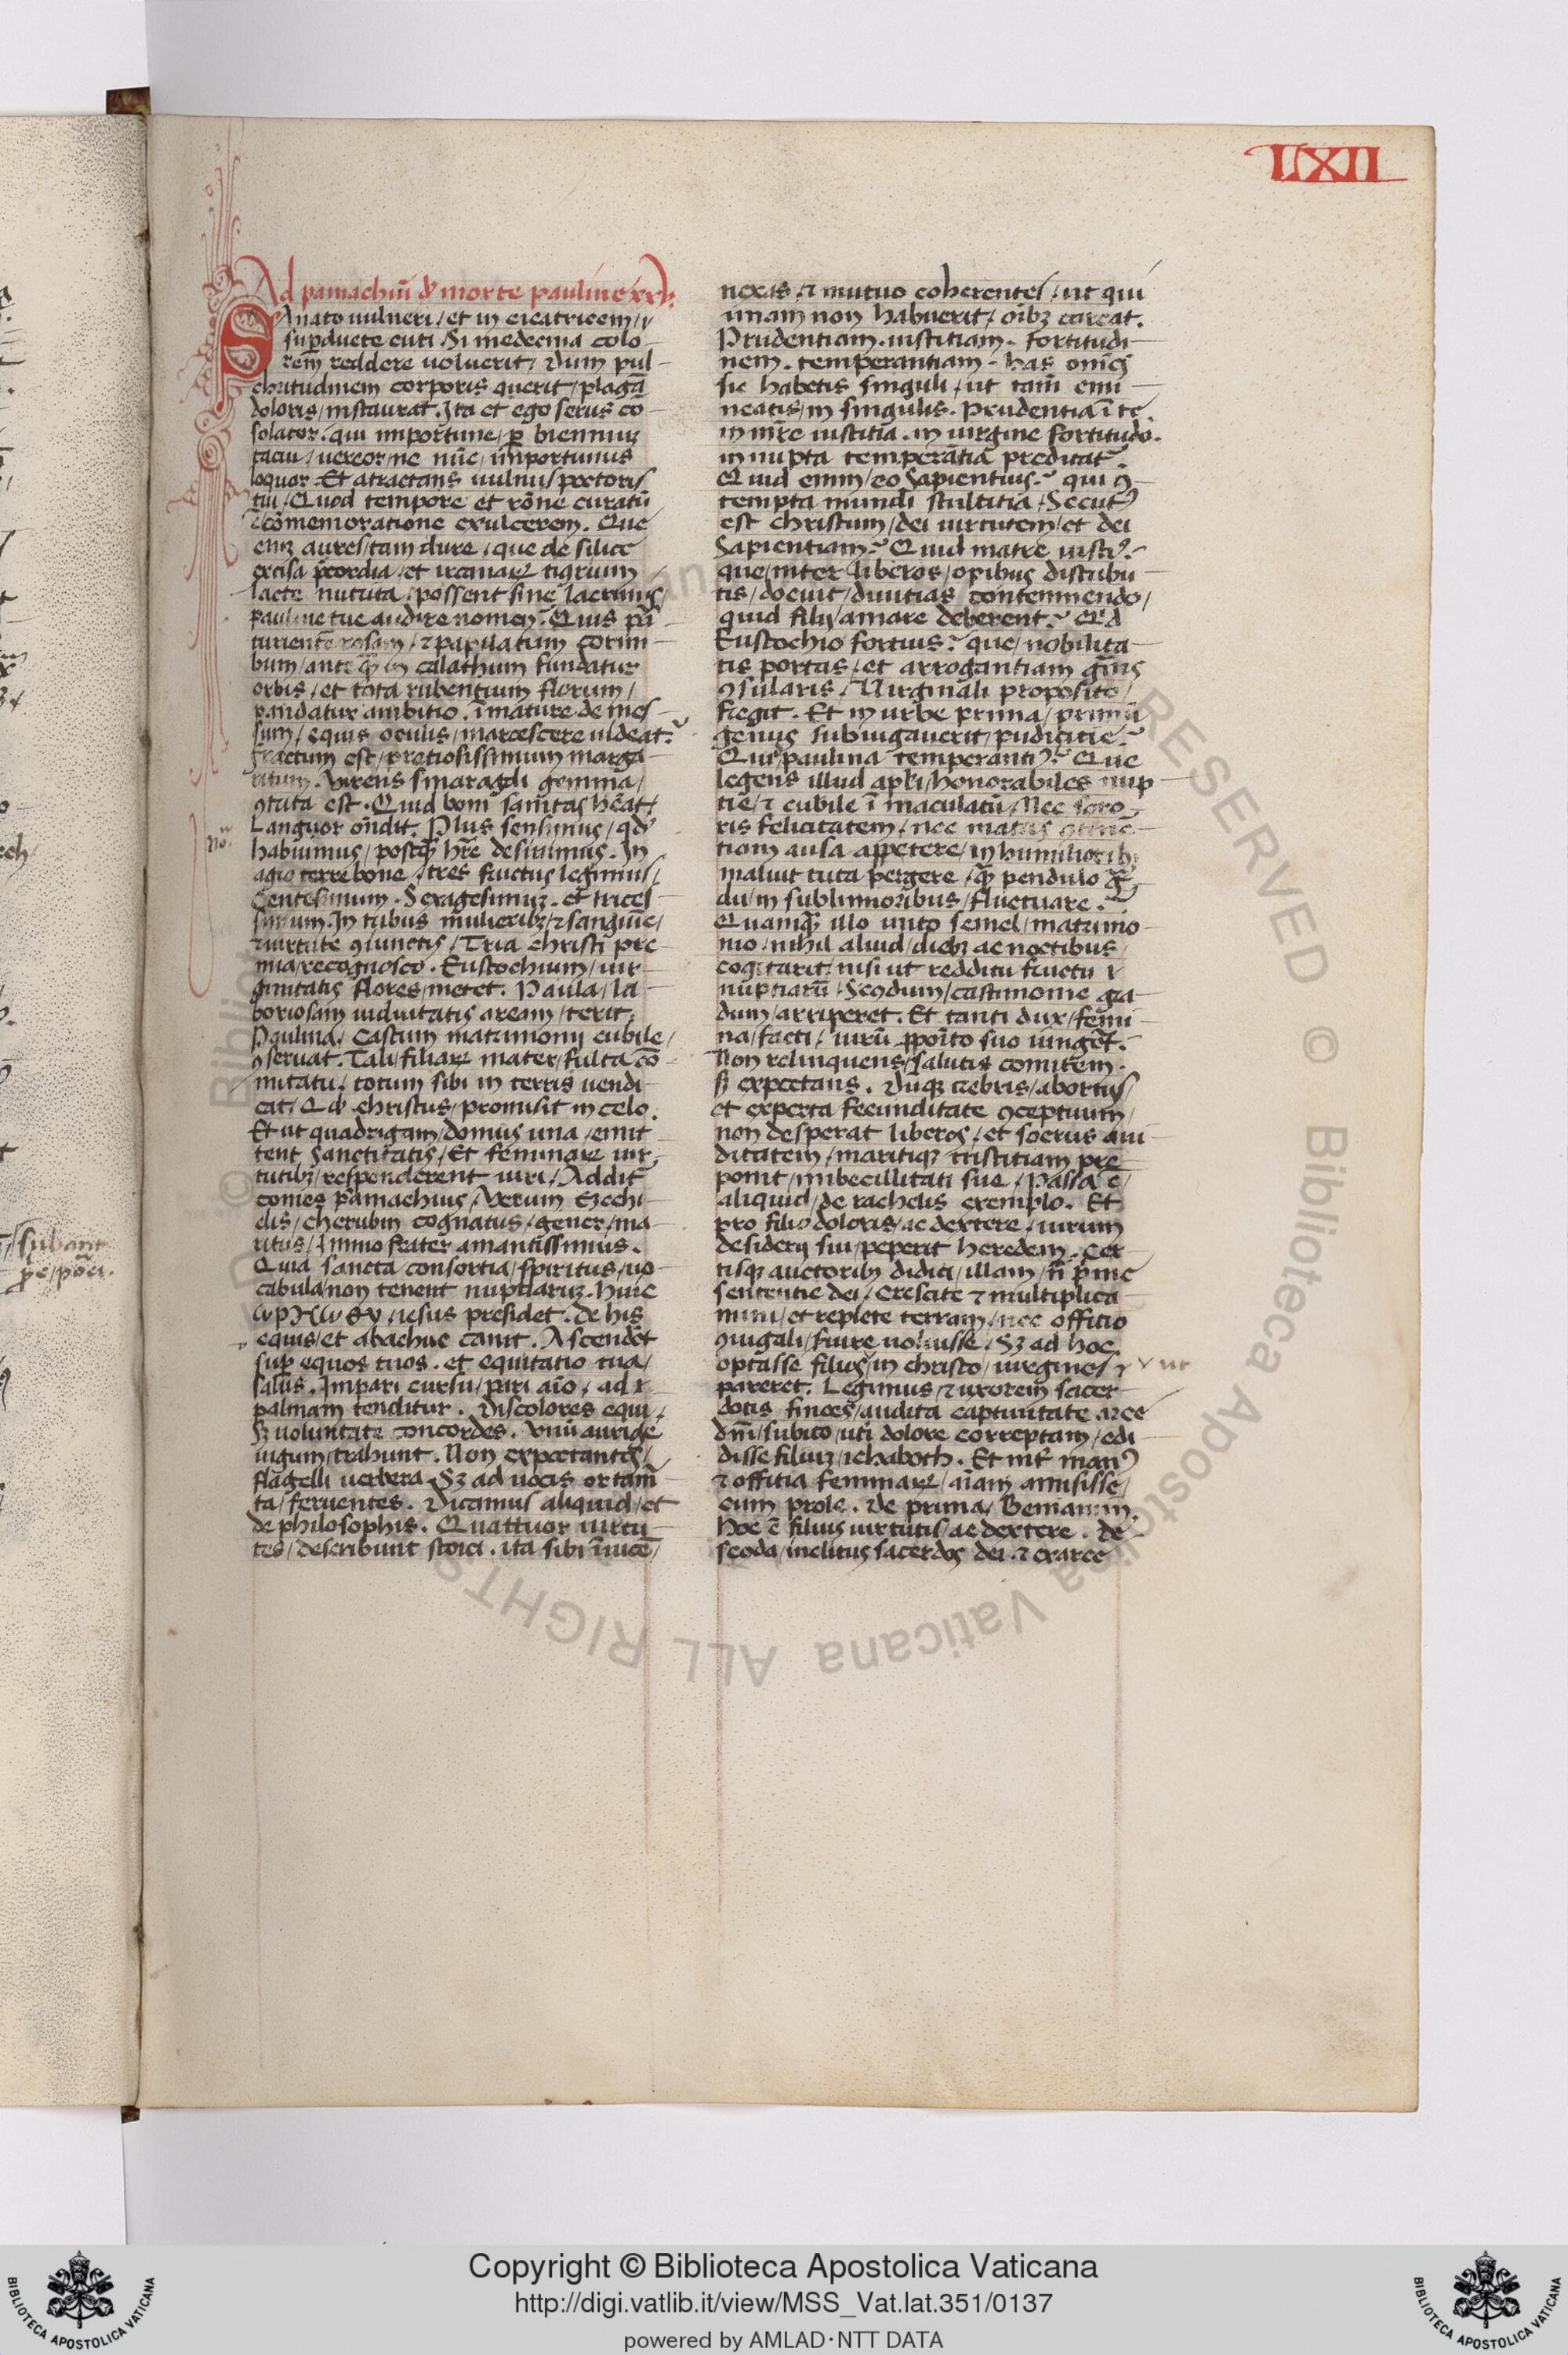 LXII
Ad pamachiũ đ morte pauline xxv.
SAnato uulneri / et in cicatricem /
superducte cuti. Si medecina colo
rem reddere uoluerit / dum pul
chritudinem corporis querit / plagã
doloris / instaurat. Ita et ego serus cõ
solator. qui importune / ꝑ bienniuꝫ
tacui / uereor / ne nũc / importunius
loquar. Et atractans uulnus / pectoris
tui / Quod tempore et rõne curatũ
cõmemoratione exulcerem. Que
eniꝫ aures / tam dure / que de silice
excisa p̃cordia / et ircanaꝝ tigrium
lacte nutrita / possent sine lacrimis /
pauline tue audire nomen? Quis pã
turientẽ rosam / ⁊ papilatum corim
bum / ante q̃ꝫ in calathum fundatur
orbis / et tota rubentium florum /
pandatur ambitio. ĩmature demes
sum / equis oculis / marcescere uideat?
Fractum est / pretiosissimum marga
ritum. Virens smaragdi gemma /
ꝯtrita est. Quid boni sanitas hẽat /
Languor oñdit. Plus sensimus / qđ
habuimus / postq̃ꝫ hr̃e desiuimus. In
agro terre bone / tres fructus legimus /
Centesimum. Sexagesimuꝫ. et trices
simum. In tribus mulieribꝫ / ⁊ sanguĩe /
⁊ uirtute ꝯiunctis / Tria christi pre
mia / recognosco. Eustochium / uir
ginitatis flores / metet. Paula / la
boriosam uiduitatis aream / terit.
Paulina / Castum matrimonij cubile /
ꝯseruat. Tali / filiaꝝ mater / fulta cõ
mitatu / totum sibi in terris uendi
cat / Qđ christus / promisit in celo.
Et ut quadrigam / domus una / emit
tent sanctitatis / Et feminaꝝ uir
tutibꝫ / responderent uiri / Addit
comes pamachius / Verum Ezechi
elis / cherubin cognatus / gener / ma
ritus / Immo frater amantissimus.
Quia sancta consortia / spiritus / uo
cabula / non tenent nuptiaruꝫ. Huic
/ iesus presidet. De his
equis / et abachuc canit. Ascendet
sup equos tuos. et equitatio tua /
salus. Impari cursu / pari aĩo / ad
palmam tenditur. Discolores equi /
sꝫ uoluntate concordes. Vnũ aurige
iugum / trahunt. Non expectantes /
flagelli uerbera. Sꝫ ad uocis ortam̃
ta / feruentes. Dicamus aliquid / et
de philosophis. Quattuor uirtu
tes / describunt stoici. ita sibi ĩuicẽ /
nexas / ⁊ mutuo coherentes / ut qui
unam non habuerit / oĩbꝫ careat.
Prudentiam. iustitiam. Fortitudi
nem. temperantiam. has omnes
sic habetis singuli / ut tam̃ emi
neatis / in singulis. Prudentia ĩ te.
in mr̃e iustitia. in uirgine fortitudo.
in nupta temperãtia predicat̃.
Quid enim / eo sapientius? qui ꝯ
tempta mundi stultitia / Secutꝰ
est christum / dei uirtutem / et dei
Sapientiam? Quid matre iustiꝰ?
que / inter liberos / opibus distribu
tis / docuit / diuitias contemnendo /
quid filij / amare deberent? Qid
Eustochio fortius? que / nobilita
tis portas / et arrogantiam gñis
ꝯsularis / Virginali proposito /
fregit. Et in urbe prima / primũ
genus subiugauerit / pudicitie?
Quid / paulina temperantiꝰ? Que
legens illud apłi / honorabiles nup
tie / ⁊ cubile ĩ maculatũ / Nec soro
ris felicitatem / nec matris ꝯtinẽ
tiam ausa appetere / in humilioribꝫ
maluit tuta pergere / q̃ꝫ pendulo g̃
du / in sublimoribus / fluctuare.
Quamqꝫ illo inito semel / matrimo
nio / nihil aliud / diebꝫ ac noctibus /
cogitarit / nisi ut redditu fructu
nuptiarũ / Secꝯdum / castimonie gra
dum / arriperet. Et tanti dux / femi
na / facti / uirũ ꝓpoĩto suo iunget̃.
Non relinquens / salutis comitem.
sꝫ expectans. Duqꝫ crebris / abortijs
et experta fecunditate ꝯceptuum /
non desperat liberos / et socrus aui
ditatem / maritiqꝫ tristitiam pre
ponit / imbecillitati sue / Passa ẽ /
aliquid / de rachelis exemplo. Et
pro filio doloris / ac dextere / uirum
desiderij sui / peperit heredem. Cer
tisqꝫ auctoribꝫ didici / illam / ñ p̃me
sententie dei / Crescite ⁊ multiplica
mini / et replete terram / nec offitio
ꝯiugali / fuire uoluisse / Sꝫ ad hoc
optasse filios / in christo / uirgines / ut
pareret. Legimus / ⁊ uxorem sacer
dotis finees / audita captiuitate arce
dñi / subito / uti dolore correptam / edi
disse filiuꝫ / ichaboth. Et int̃ manꝰ
⁊ offitia feminaꝝ / aĩam amisisse /
cum prole. De prima / Beniamin.
Hoc ẽ filius uirtutis / ac dextere. De
scoda / inclitus sacerdos dei. ⁊ ex arce
no.
subant
Copyright © Biblioteca Apostolica Vaticana
http://digi.vatlib.it/view/MSS_Vat.lat.351/0137
powered by AMLAD·NTT DATA
BIBLIOTECA APOSTOLICA VATICANA
BIBLIOTECA APOSTOLICA VATICANA
© Biblioteca Apostolica Vaticana ALL RIGHTS RESERVED